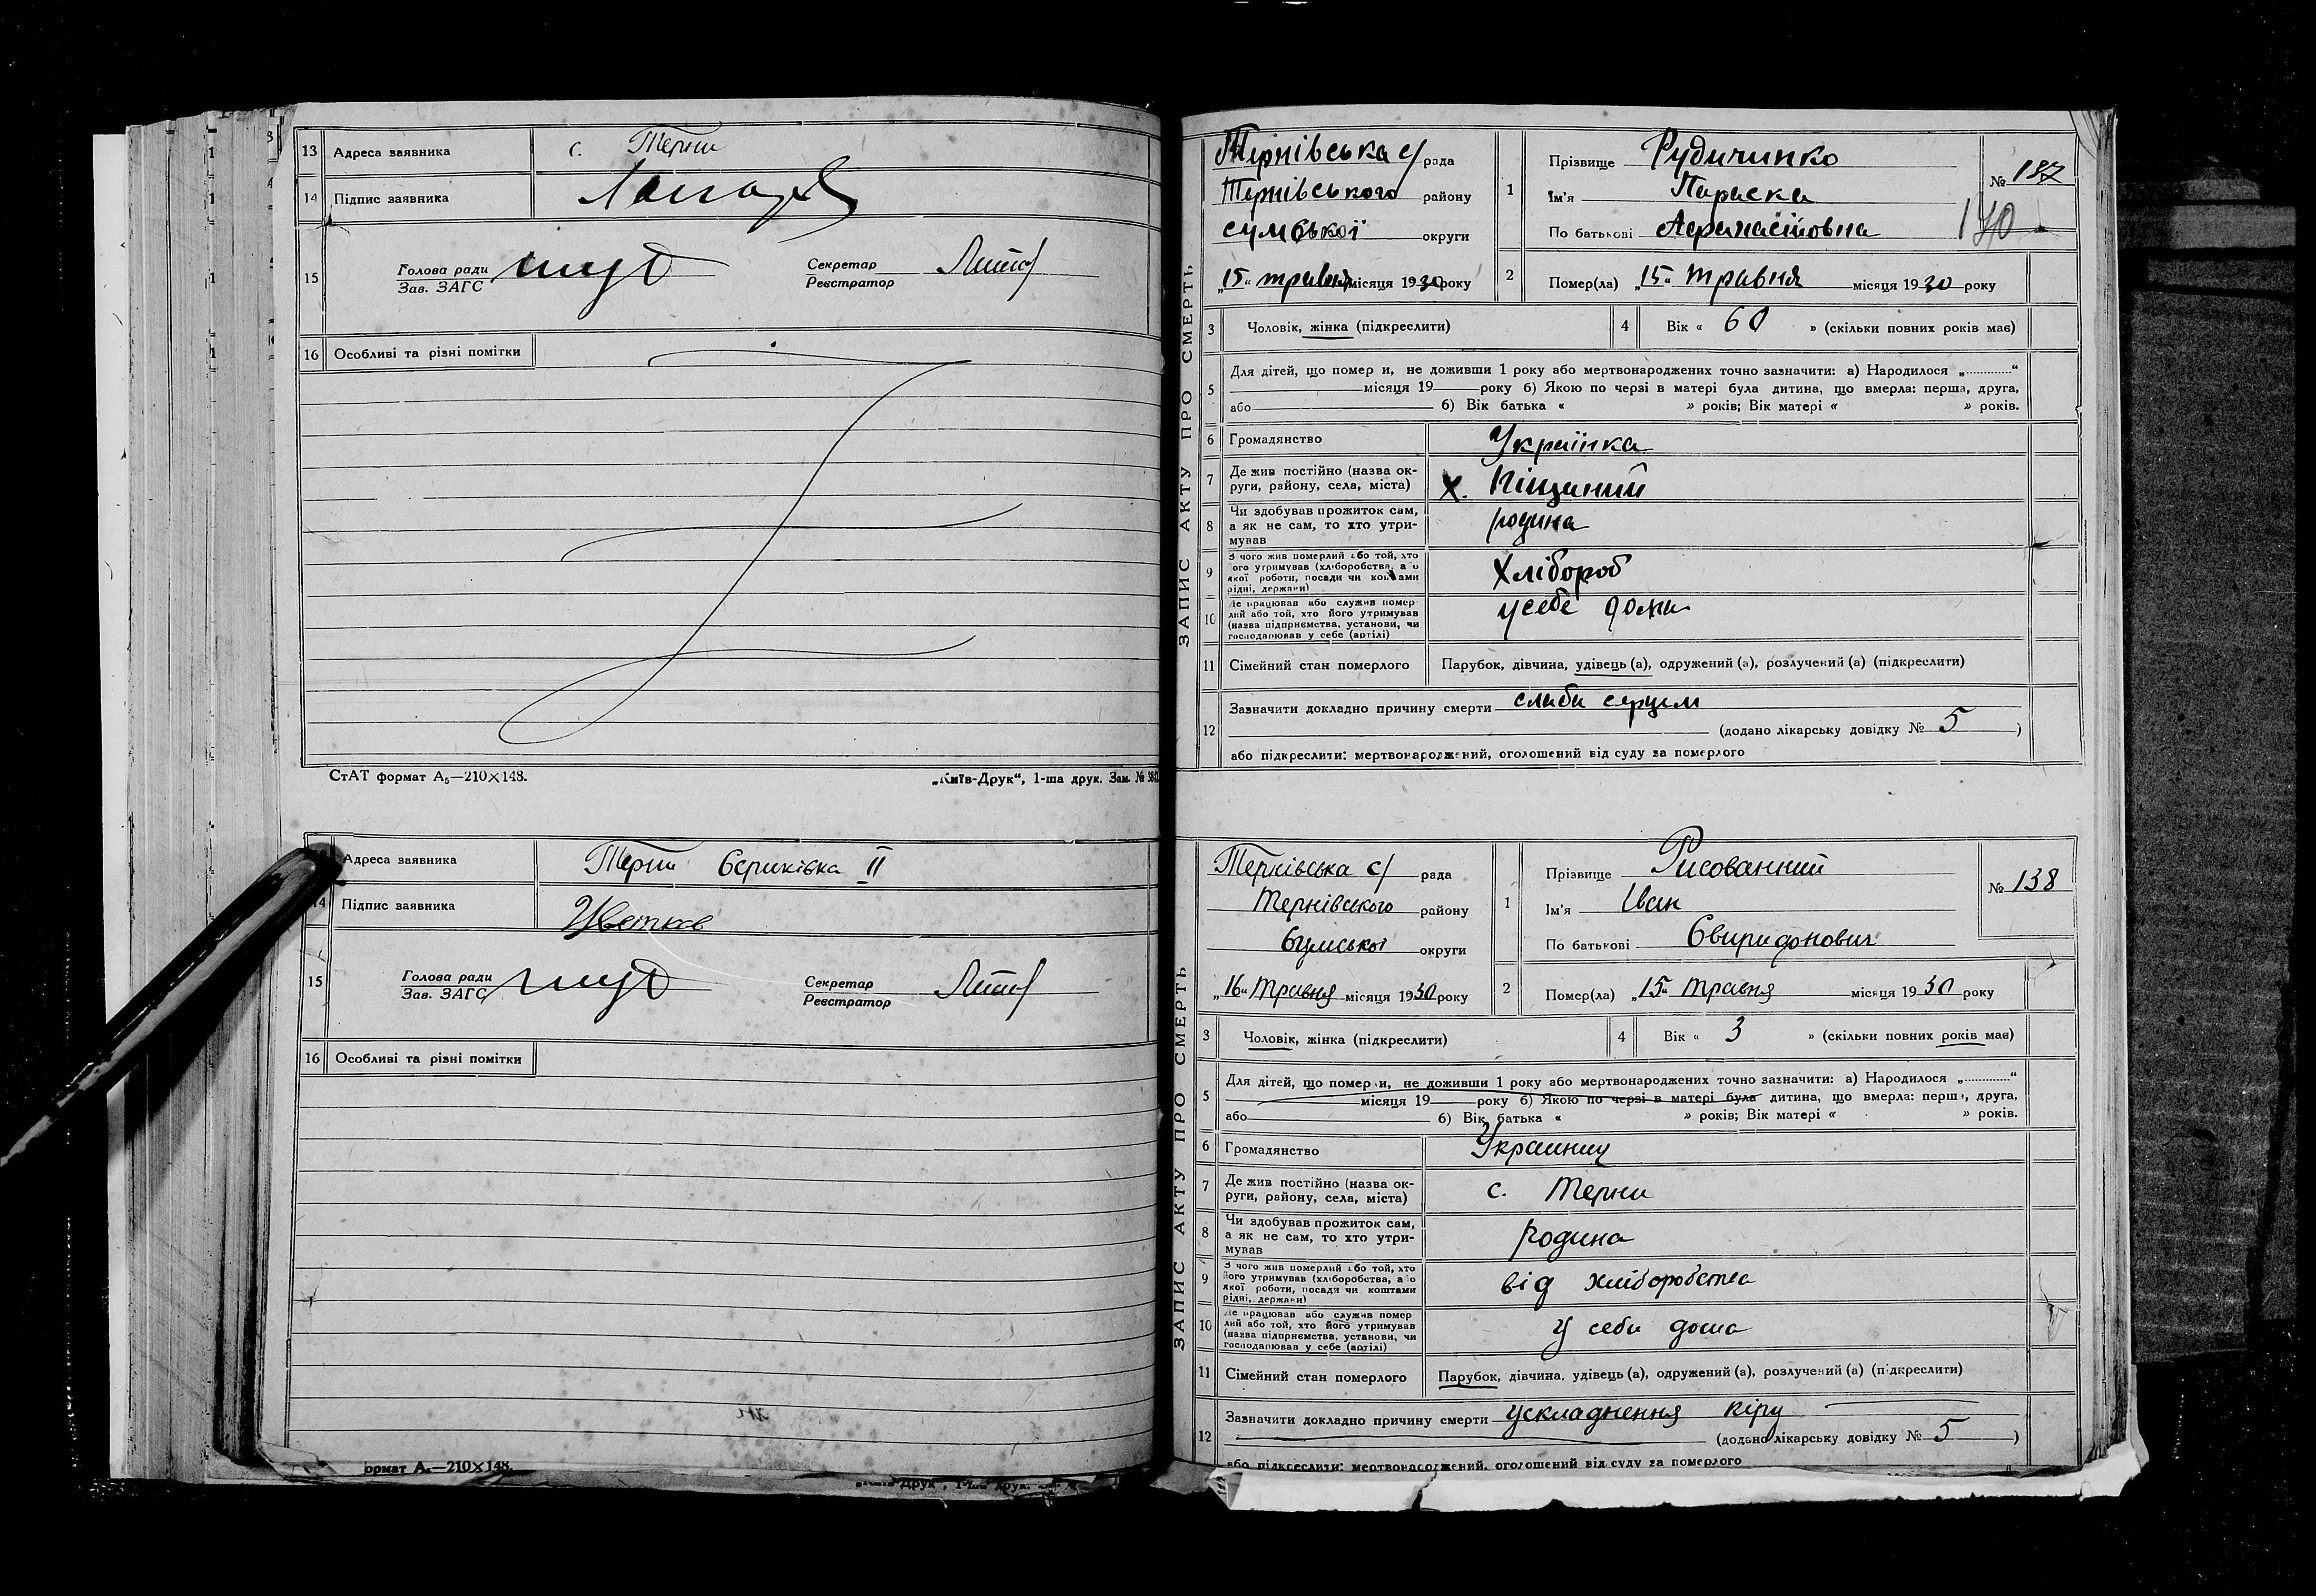 13 Адреса заявника с. Терни
14 Підпис заявника
15 Голова ради
Зав. ЗАГС
Секретар
Реєстратор
16 Особливі та різні помітки
СтАТ формат А₅—210×148.
„Київ-Друк“, 1-ша друк. Зам. №
Адреса заявника Терни ІІ
14 Підпис заявника Цветков
15 Голова ради
Зав. ЗАГС
Секретар
Реєстратор
16 Особливі та різні помітки
ормат А₅—210×148.
ЗАПИС АКТУ ПРО СМЕРТЬ
Тернівська с/ рада
Тернівського району
сумської округи
„15“ травня місяця 1930 року
1 Прізвище Рудиченко
Ім'я Параска
По батькові Афанасіївовна
№ 187
140
2 Помер(ла) „15“ травня місяця 1930 року
3 Чоловік, жінка (підкреслити)
4 Вік « 60 » (скільки повних років має)
5 Для дітей, що помер и, не доживши 1 року або мертвонароджених точно зазначити: а) Народилося „............“
місяця 19 року б) Якою по черзі в матері була дитина, що вмерла: перша, друга,
або б) Вік батька « » років; Вік матері « » років.
6 Громадянство Українка
7 Де жив постійно (назва ок-
руги, району, села, міста) х. Піщаний
8 Чи здобував прожиток сам,
а як не сам, то хто утри-
мував родина
9 З чого жив померлий або той, хто
ого утримував (хліборобства, або
якої роботи, посади чи коштами
рідні, держави) Хлібороб
10 Де працював або служив помер
лий або той, хто його утримував
(назва підприємства, установи, чи
господарював у себе (артілі) у себе дома
11 Сімейний стан померлого Парубок, дівчина, удівець (а), одружений (а), розлучений (а) (підкреслити)
12 Зазначити докладно причину смерти слаба серцем
(додано лікарську довідку № 5 )
або підкреслити: мертвонароджений, оголошений від суду за померлого
ЗАПИС АКТУ ПРО СМЕРТЬ
Тернівська с/ рада
Тернівського району
Сумської округи
„16“ Травня місяця 1930 року
1 Прізвище Рисованний
Ім'я Іван
По батькові Свиридонович
№ 138
2 Помер(ла) „15“ травня місяця 1930 року
3 Чоловік, жінка (підкреслити)
4 Вік « 3 » (скільки повних років має)
5 Для дітей, що помер и, не доживши 1 року або мертвонароджених точно зазначити: а) Народилося „............“
місяця 19 року б) Якою по черзі в матері була дитина, що вмерла: перша, друга,
або б) Вік батька « » років; Вік матері « » років.
6 Громадянство
7 Де жив постійно (назва ок-
руги, району, села, міста) с. Терни
8 Чи здобував прожиток сам,
а як не сам, то хто утри-
мував родина
9 З чого жив померлий або той, хто
його утримував (хліборобства, або
якої роботи, посади чи коштами
рідні, держави) від хліборобства
10 Де працював або служив помер
лий або той, хто його утримував
(назва підприємства, установи, чи
господарював у себе (артілі) у себи дома
11 Сімейний стан померлого Парубок, дівчина, удівець (а), одружений (а), розлучений (а) (підкреслити)
12 Зазначити докладно причину смерти ускладнення кіру
(додано лікарську довідку № 5 )
або підкреслити: мертвонароджений, оголошений від суду за померлого